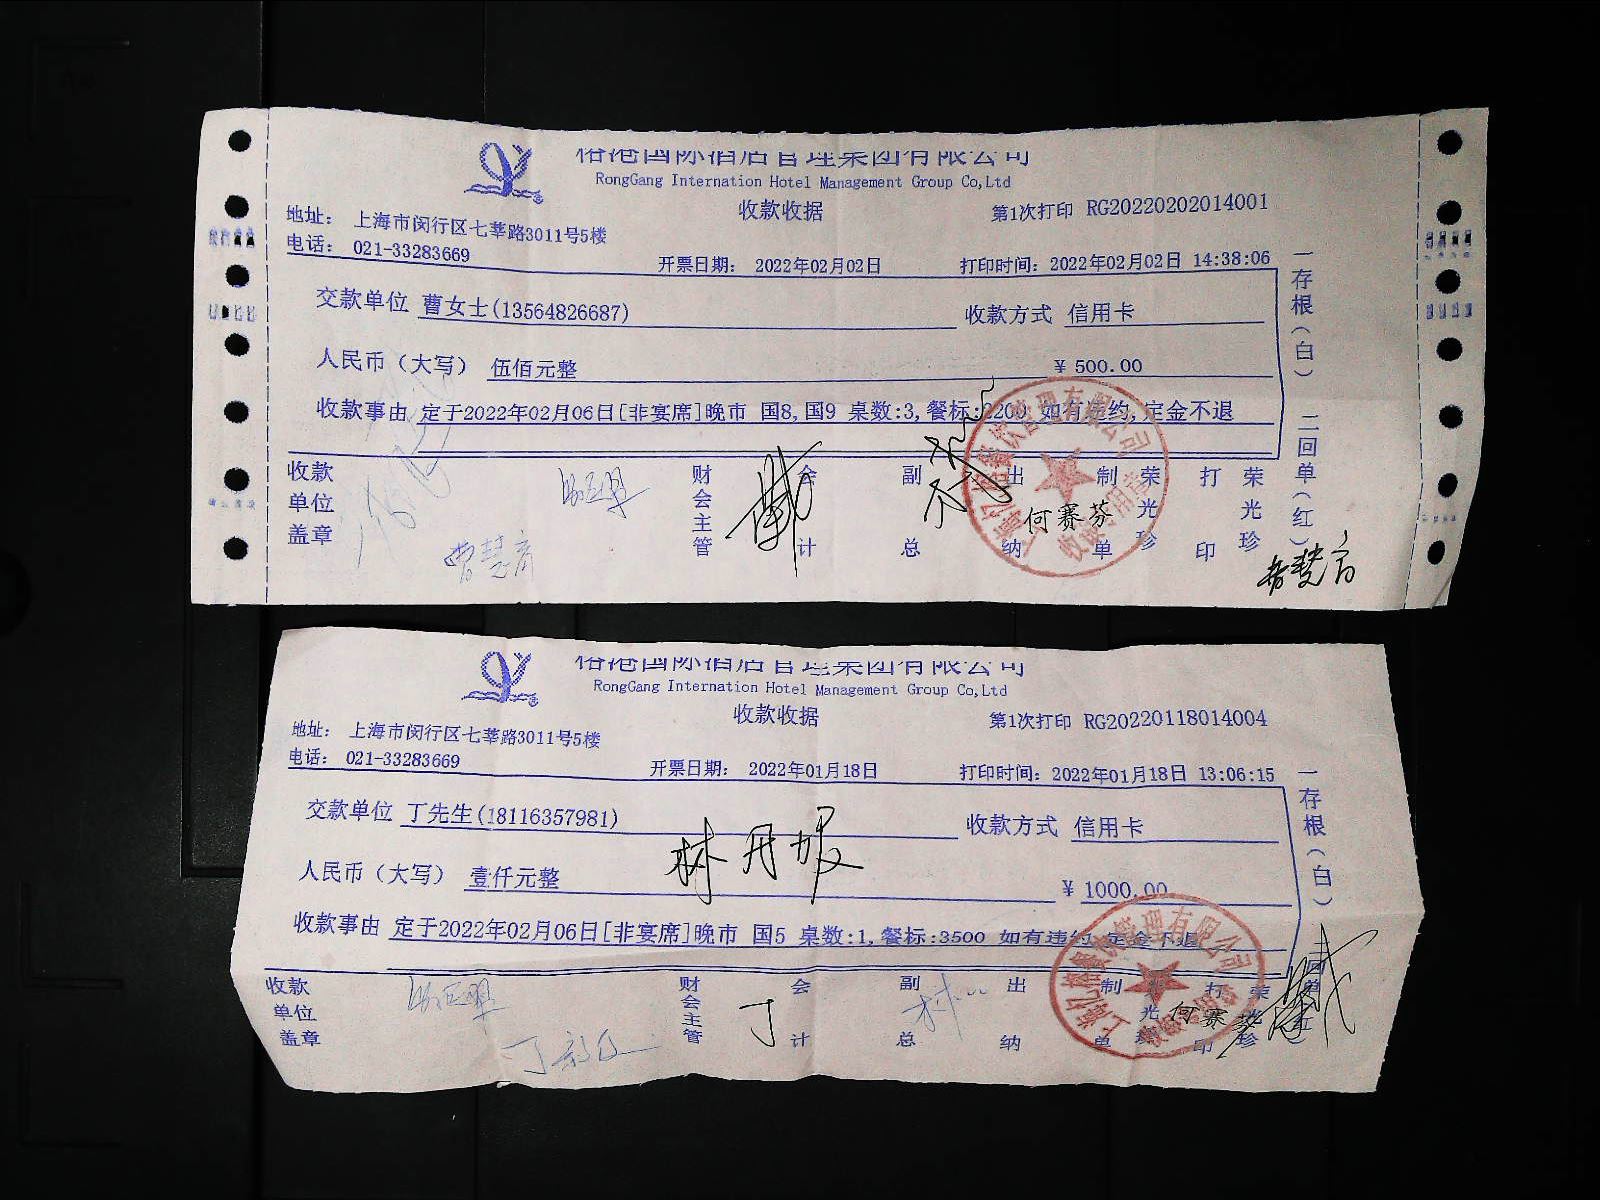 榕港国际酒店管理集团有限公司
RongGang Internation Hotel Management Group Co,Ltd
收款收据
第1次打印 RG20220202014001
地址： 上海市闵行区七莘路3011号5楼
电话： 021-33283669
开票日期： 2022年02月02日
打印时间：2022年02月02日 14:38:06
交款单位 曹女士(13564826687)
收款方式 信用卡
人民币（大写） 伍佰元整
¥ 500.00
收款事由 定于2022年02月06日[非宴席]晚市 国8,国9 桌数:3,餐标:2200 如有违约,定金不退
收款单位盖章
财会主管
会计
副总
出纳
何赛芬
制单
荣光珍
打印
荣光珍
一存根(白) 二回单(红)
曹慧
榕港国际酒店管理集团有限公司
RongGang Internation Hotel Management Group Co,Ltd
收款收据
第1次打印 RG20220118014004
地址： 上海市闵行区七莘路3011号5楼
电话： 021-33283669
开票日期： 2022年01月18日
打印时间：2022年01月18日 13:06:15
交款单位 丁先生(18116357981)
收款方式 信用卡
人民币（大写） 壹仟元整
¥ 1000.00
收款事由 定于2022年02月06日[非宴席]晚市 国5 桌数:1,餐标:3500 如有违约,定金不退
收款单位盖章
财会主管
丁
会计
副总
林
出纳
制单
荣光珍
何赛芬
打印
荣光珍
一存根(白) 二回单(红)